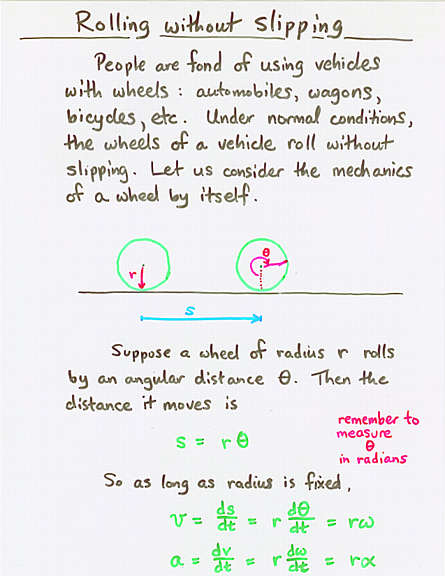 Rolling without slipping
People are fond of using vehicles
with wheels : automobiles, wagons,
bicycles, etc. Under normal conditions,
the wheels of a vehicle roll without
slipping. Let us consider the mechanics
of a wheel by itself.
r
θ
s
Suppose a wheel of radius r rolls
by an angular distance θ. Then the
distance it moves is
s = rθ
remember to
measure
θ
in radians
So as long as radius is fixed,
v = ds/dt = r dθ/dt = rω
a = dv/dt = r dω/dt = rα